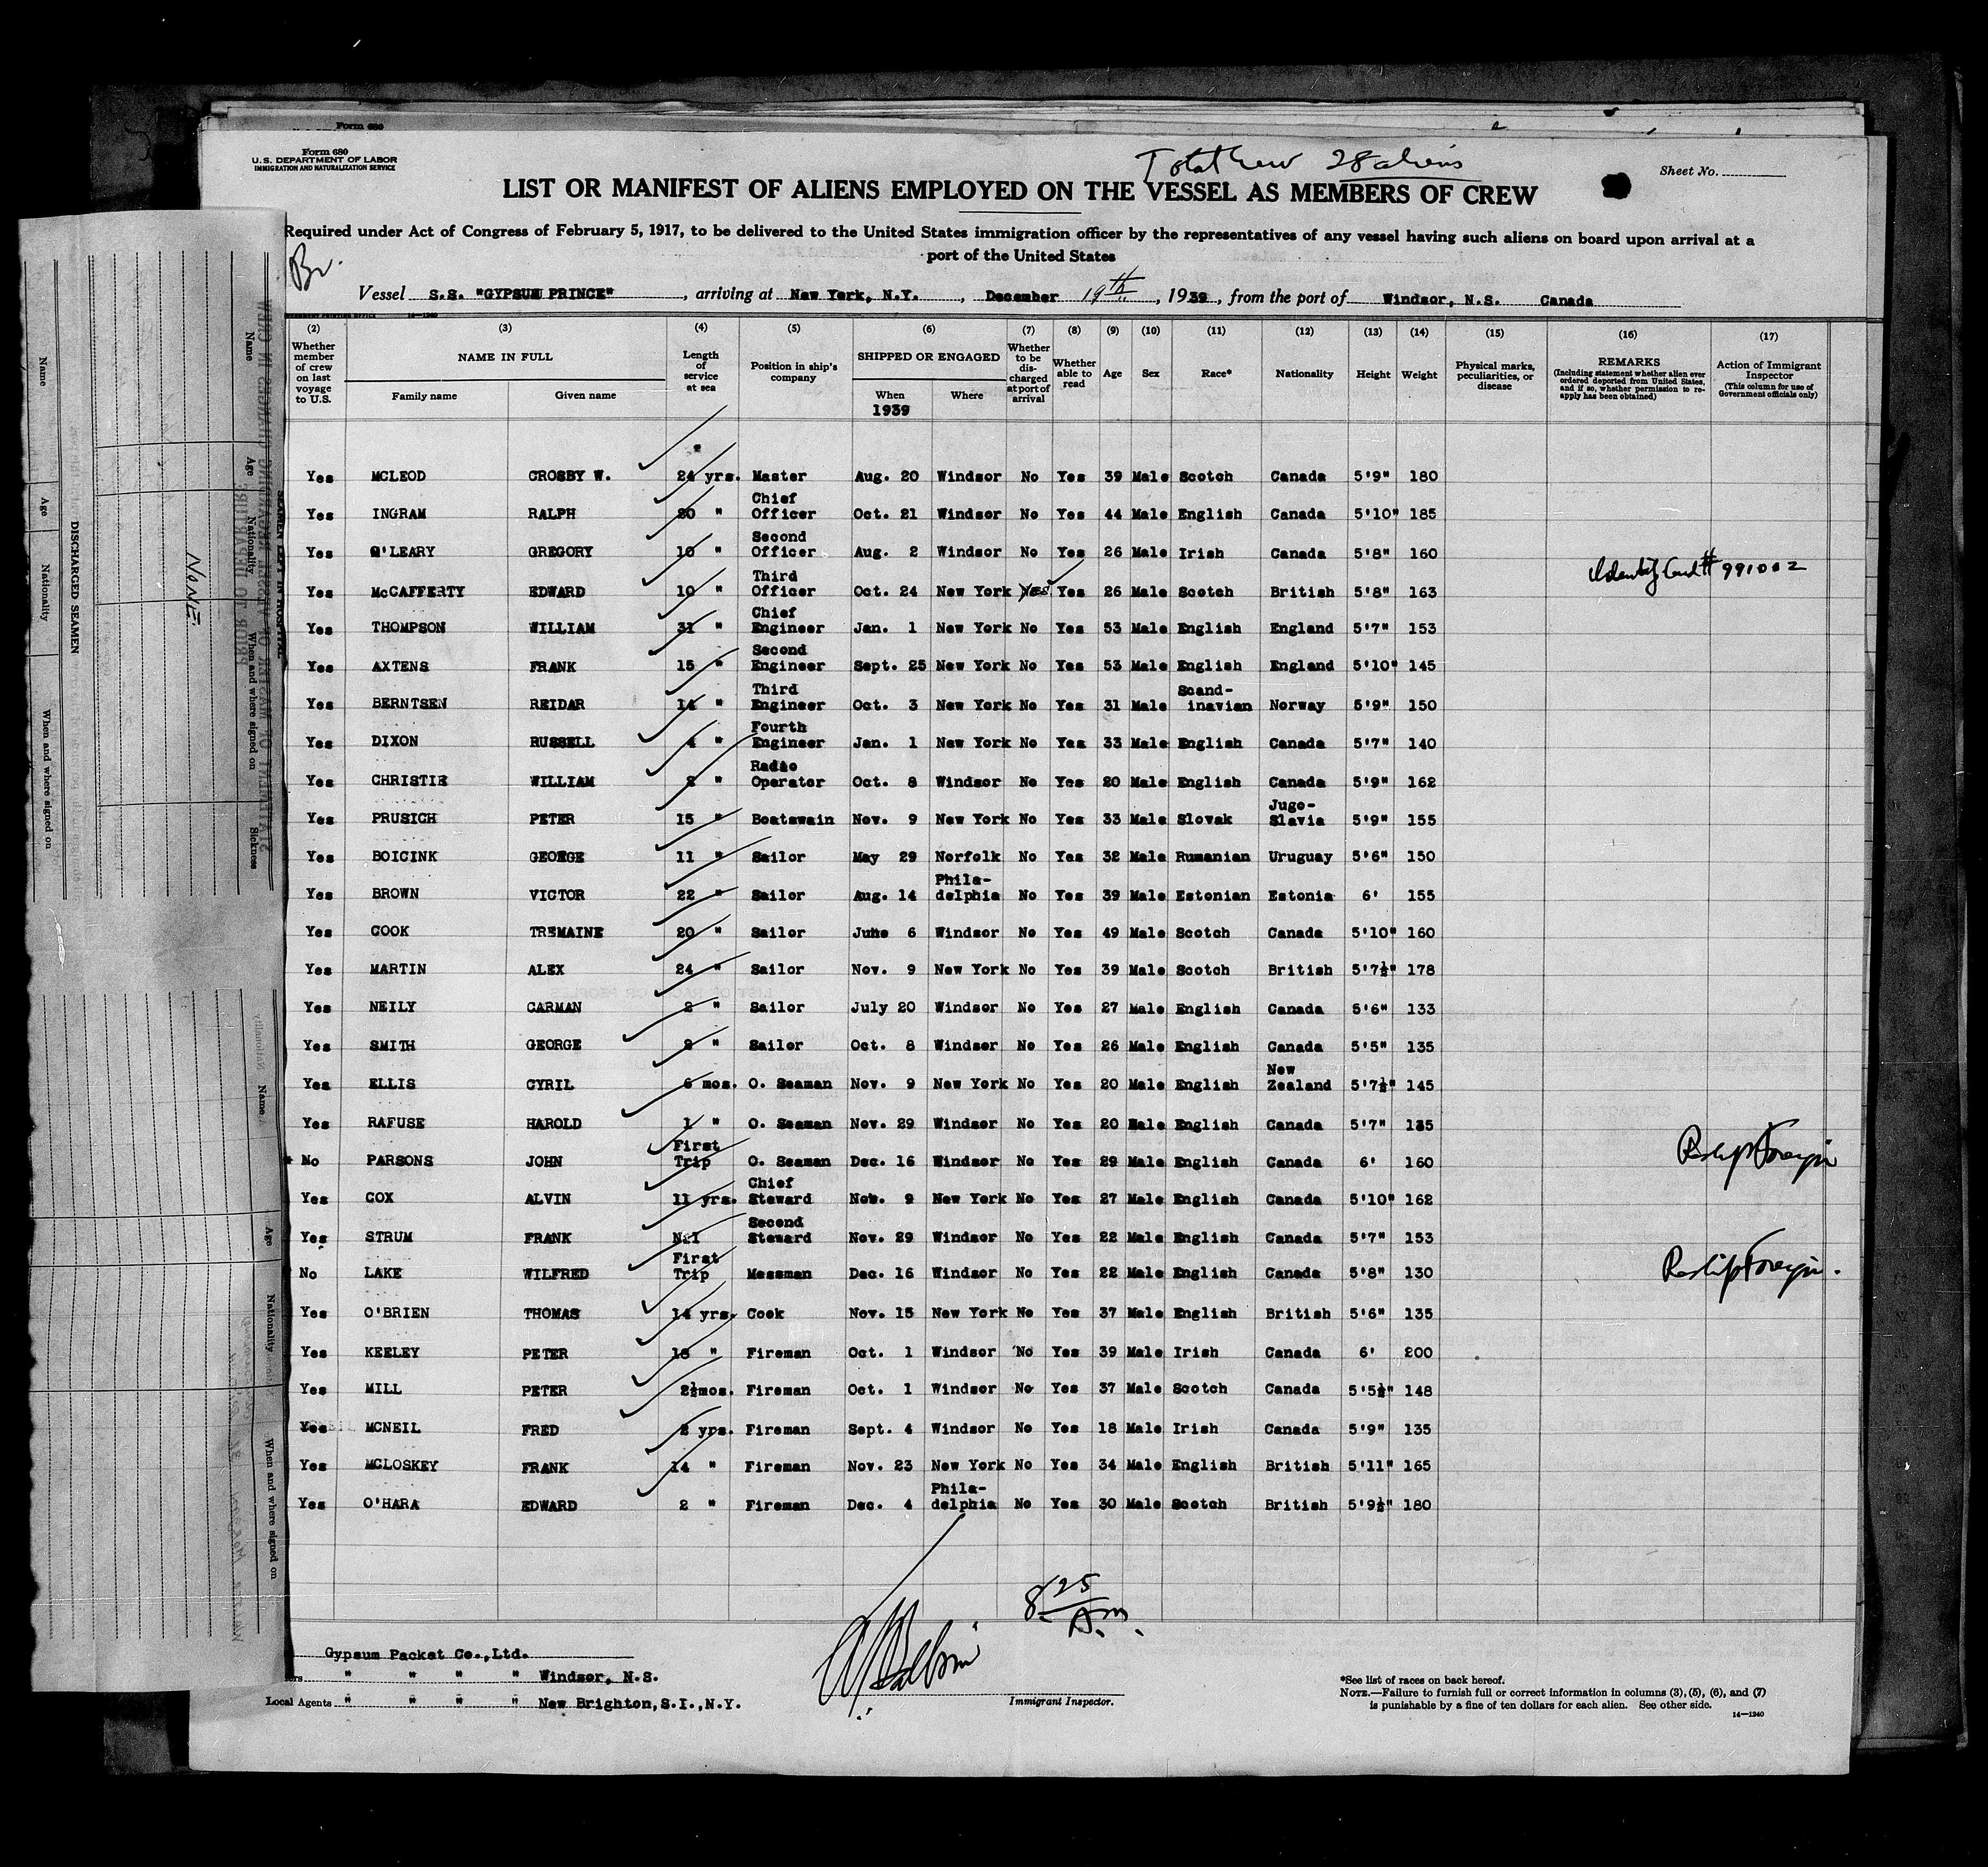 Form 680
Form 680
U.S. DEPARTMENT OF LABOR
IMMIGRATION AND NATURALIZATION SERVICE
Total Crew 28 aliens
Sheet No.
LIST OR MANIFEST OF ALIENS EMPLOYED ON THE VESSEL AS MEMBERS OF CREW
Required under Act of Congress of February 5, 1917, to be delivered to the United States immigration officer by the representatives of any vessel having such aliens on board upon arrival at a
port of the United States
Br.
Vessel S.S. "GYPSUM PRINCE", arriving at New York, N.Y., December 19th, 1939, from the port of Windsor, N.S. Canada
(2) (3) (4) (5) (6) (7) (8) (9) (10) (11) (12) (13) (14) (15) (16) (17)
Whether member of crew on last voyage to U.S.
NAME IN FULL
Family name Given name
Length of service at sea
Position in ship's company
SHIPPED OR ENGAGED
When Where
1939
Whether to be discharged at port of arrival
Whether able to read
Age Sex Race* Nationality Height Weight
Physical marks, peculiarities, or disease
REMARKS
(Including statement whether alien ever ordered deported from United States, and if so, whether permission to reapply has been obtained)
Action of Immigrant Inspector
(This column for use of Government officials only)
Yes MCLEOD CROSBY W. 24 yrs. Master Aug. 20 Windsor No Yes 39 Male Scotch Canada 5'9" 180
Yes INGRAM RALPH 20 " Chief Officer Oct. 21 Windsor No Yes 44 Male English Canada 5'10" 185
Yes O'LEARY GREGORY 10 " Second Officer Aug. 2 Windsor No Yes 26 Male Irish Canada 5'8" 160
Yes McCAFFERTY EDWARD 10 " Third Officer Oct. 24 New York Yes Yes 26 Male Scotch British 5'8" 163 Identity Card # 991002
Yes THOMPSON WILLIAM 31 " Chief Engineer Jan. 1 New York No Yes 53 Male English England 5'7" 153
Yes AXTENS FRANK 15 " Second Engineer Sept. 25 New York No Yes 53 Male English England 5'10" 145
Yes BERNTSEN REIDAR 14 " Third Engineer Oct. 3 New York No Yes 31 Male Scandinavian Norway 5'9" 150
Yes DIXON RUSSELL 4 " Fourth Engineer Jan. 1 New York No Yes 33 Male English Canada 5'7" 140
Yes CHRISTIE WILLIAM 2 " Radio Operator Oct. 8 Windsor No Yes 20 Male English Canada 5'9" 162
Yes PRUSICH PETER 15 " Boatswain Nov. 9 New York No Yes 33 Male Slovak Jugo-Slavia 5'9" 155
Yes BOICINK GEORGE 11 " Sailor May 29 Norfolk No Yes 32 Male Rumanian Uruguay 5'6" 150
Yes BROWN VICTOR 22 " Sailor Aug. 14 Philadelphia No Yes 39 Male Estonian Estonia 6' 155
Yes COOK TREMAINE 20 " Sailor June 6 Windsor No Yes 49 Male Scotch Canada 5'10" 160
Yes MARTIN ALEX 24 " Sailor Nov. 9 New York No Yes 39 Male Scotch British 5'7½" 178
Yes NEILY CARMAN 2 " Sailor July 20 Windsor No Yes 27 Male English Canada 5'6" 133
Yes SMITH GEORGE " Sailor Oct. 8 Windsor No Yes 26 Male English Canada 5'5" 135
Yes ELLIS CYRIL 6 mos. O. Seaman Nov. 9 New York No Yes 20 Male English New Zealand 5'7½" 145
Yes RAFUSE HAROLD 1 " O. Seaman Nov. 29 Windsor No Yes 20 Male English Canada 5'7" 135
No PARSONS JOHN First Trip O. Seaman Dec. 16 Windsor No Yes 29 Male English Canada 6' 160 Reship Foreign
Yes COX ALVIN 11 yrs. Chief Steward Nov. 9 New York No Yes 27 Male English Canada 5'10" 162
Yes STRUM FRANK Second Steward Nov. 29 Windsor No Yes 22 Male English Canada 5'7" 153
No LAKE WILFRED First Trip Messman Dec. 16 Windsor No Yes 22 Male English Canada 5'8" 130 Reship Foreign.
Yes O'BRIEN THOMAS 14 yrs. Cook Nov. 15 New York No Yes 37 Male English British 5'6" 135
Yes KEELEY PETER " Fireman Oct. 1 Windsor No Yes 39 Male Irish Canada 6' 200
Yes MILL PETER 2½mos. Fireman Oct. 1 Windsor No Yes 37 Male Scotch Canada 5'5½" 148
Yes MCNEIL FRED 2 yrs. Fireman Sept. 4 Windsor No Yes 18 Male Irish Canada 5'9" 135
Yes MCLOSKEY FRANK 14 " Fireman Nov. 23 New York No Yes 34 Male English British 5'11" 165
Yes O'HARA EDWARD 2 " Fireman Dec. 4 Philadelphia No Yes 30 Male Scotch British 5'9½" 180
8 25 A.m.
Gypsum Packet Co.,Ltd.
" " " " Windsor, N.S.
Local Agents " " " " New Brighton,S.I.,N.Y.
Immigrant Inspector.
*See list of races on back hereof.
NOTE.—Failure to furnish full or correct information in columns (3), (5), (6), and (7)
is punishable by a fine of ten dollars for each alien. See other side.
14—1240
DISCHARGED SEAMEN
Name Age Nationality When and where signed on
NONE.
Name Age Nationality When and where signed on Sickness
SEAMEN LEFT IN HOSPITAL
PRIOR TO DEPARTURE
STATEMENT OF MASTER OF VESSEL REGARDING CHANGES IN CREW
Name Age Nationality When and where signed on